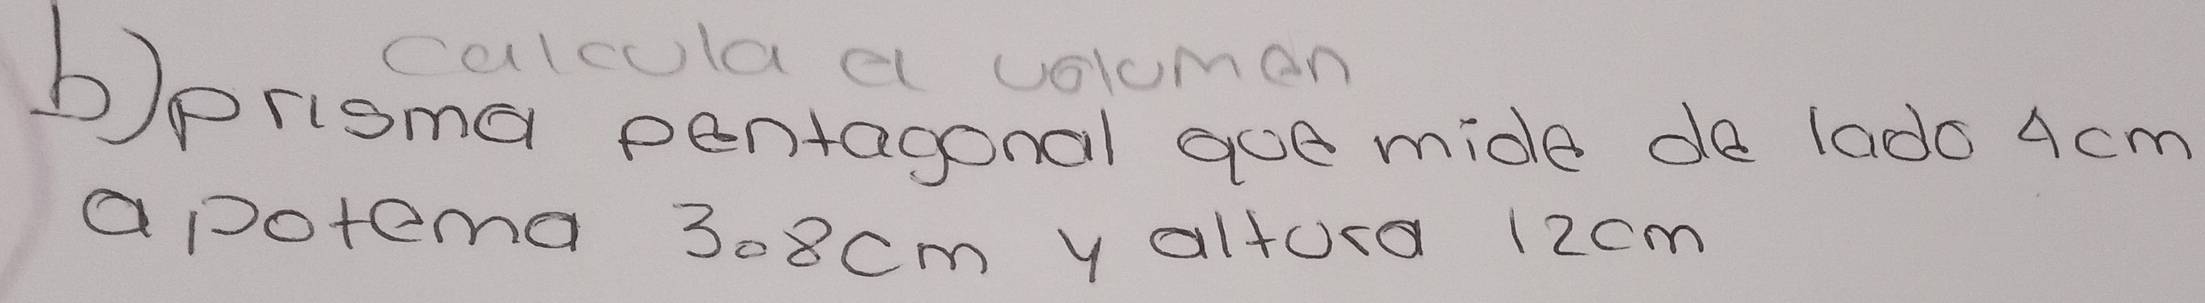 calcula el volumen
b) prisma pentagonal que mide de lado 4cm
apotema 3.8cm y altura 12cm